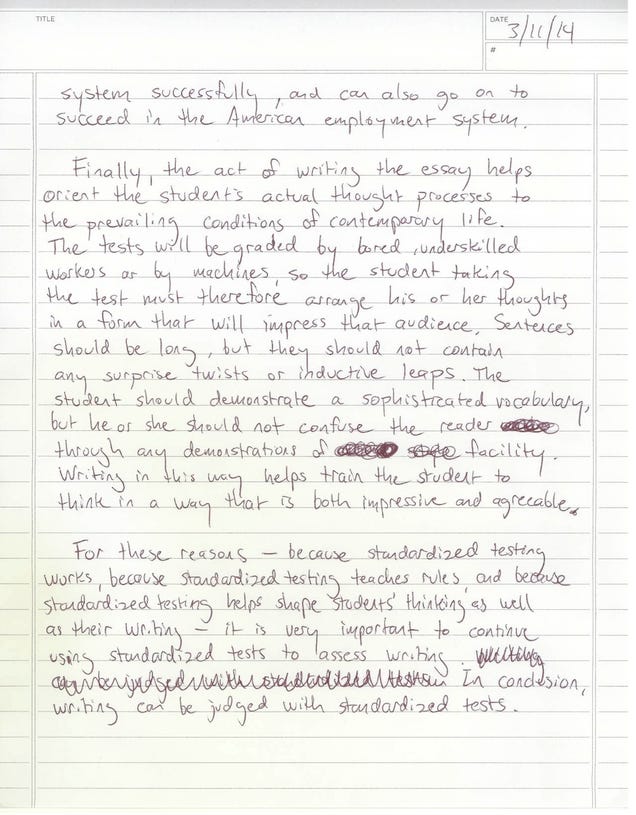 TITLE
DATE 3/11/14
#
system successfully, and can also go on to
succeed in the American employment system.
Finally, the act of writing the essay helps
orient the student's actual thought processes to
the prevailing conditions of contemporary life.
The tests will be graded by bored, underskilled
workers or by machines, so the student taking
the test must therefore arrange his or her thoughts
in a form that will impress that audience. Sentences
should be long, but they should not contain
any surprise twists or inductive leaps. The
student should demonstrate a sophistreated vocabulary,
but he or she should not confuse the reader
through any demonstrations of facility.
Writing in this way helps train the student to
think in a way that is both impressive and agreeable.
For these reasons — because standardized testing
works, because standardized testing teaches rules, and because
standardized testing helps shape students' thinking as well
as their writing — it is very important to continue
using standardized tests to assess writing.
In conclusion,
writing can be judged with standardized tests.